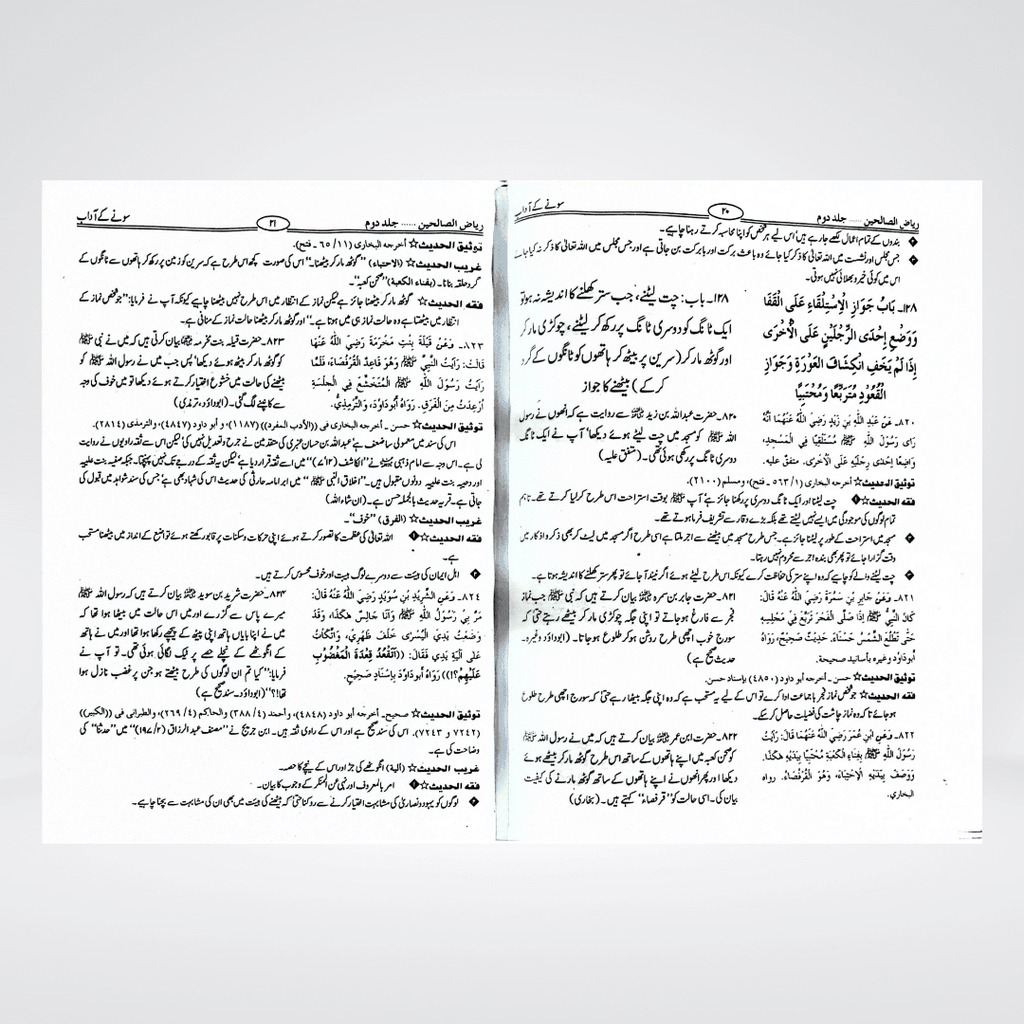 ریاض الصالحین ...... جلد دوم
۲۰
سونے کے آداب
بندوں کے تمام اعمال لکھے جا رہے ہیں اس لیے ہر شخص کو اپنا محاسبہ کرتے رہنا چاہیے۔
جس مجلس اور نشست میں اللہ تعالیٰ کا ذکر کیا جائے وہ باعث برکت اور بابرکت بن جاتی ہے اور جس مجلس میں اللہ تعالیٰ کا ذکر نہ کیا جائے
اس میں کوئی خیر و بھلائی نہیں ہوتی۔
۱۲۸۔ بَابُ جَوَازِ الْاِسْتِلْقَاءِ عَلَى الْقَفَا
وَوَضْعِ إِحْدَى الرِّجْلَيْنِ عَلَى الْأُخْرَى
إِذَا لَمْ يَخَفِ انْكِشَافَ الْعَوْرَةِ وَجَوَازِ
الْقُعُودِ مُتَرَبِّعًا وَمُحْتَبِيًا
۱۲۸۔ باب: چت لیٹنے، جب ستر کھلنے کا اندیشہ نہ ہو تو
ایک ٹانگ کو دوسری ٹانگ پر رکھ کر لیٹنے، چوکڑی مار کر
اور گوٹھ مار کر (سرین پر بیٹھ کر ہاتھوں کو ٹانگوں کے گرد
کر کے) بیٹھنے کا جواز
۸۲۰۔ عَنْ عَبْدِ اللَّهِ بْنِ زَيْدٍ رَضِيَ اللَّهُ عَنْهُمَا أَنَّهُ
رَأَى رَسُولَ اللَّهِ ﷺ مُسْتَلْقِيًا فِي الْمَسْجِدِ،
وَاضِعًا إِحْدَى رِجْلَيْهِ عَلَى الْأُخْرَى. متفق عليه.
۸۲۰۔ حضرت عبداللہ بن زید ﷺ سے روایت ہے کہ انھوں نے رسول
اللہ ﷺ کو مسجد میں چت لیٹے ہوئے دیکھا' آپ نے ایک ٹانگ
دوسری ٹانگ پر رکھی ہوئی تھی۔ (متفق علیہ)
توثیق الحدیث☆ أخرجه البخاری (۱/ ۵۶۳ ۔ فتح)، ومسلم (۲۱۰۰).
فقه الحدیث☆ چت لیٹنا اور ایک ٹانگ دوسری پر رکھنا جائز ہے آپ ﷺ بوقت استراحت اس طرح کر لیا کرتے تھے۔ تاہم
تمام لوگوں کی موجودگی میں ایسے نہیں لیٹتے تھے بلکہ بڑے وقار سے تشریف فرما ہوتے تھے۔
مسجد میں استراحت کے طور پر لیٹنا جائز ہے۔ جس طرح مسجد میں بیٹھنے سے اجر ملتا ہے اسی طرح اگر مسجد میں لیٹ کر بھی ذکر و اذکار میں
وقت گزارا جائے تو پھر بھی بندہ اجر سے محروم نہیں رہتا۔
چت لیٹنے والے کو چاہیے کہ وہ اپنے ستر کی حفاظت کرے کیونکہ اس طرح لیٹے ہوئے اگر نیند آ جائے تو پھر ستر کھلنے کا اندیشہ ہوتا ہے۔
۸۲۱۔ وَعَنْ جَابِرِ بْنِ سَمُرَةَ رَضِيَ اللَّهُ عَنْهُ قَالَ:
كَانَ النَّبِيُّ ﷺ إِذَا صَلَّى الْفَجْرَ تَرَبَّعَ فِي مَجْلِسِهِ
حَتَّى تَطْلُعَ الشَّمْسُ حَسْنَاءَ. حَدِيثٌ صَحِيحٌ، رَوَاهُ
أَبُو دَاوُدَ وغيره بأسانيد صحيحة.
۸۲۱۔ حضرت جابر بن سمرہ ﷺ بیان کرتے ہیں کہ نبی ﷺ جب نماز
فجر سے فارغ ہو جاتے تو اپنی جگہ چوکڑی مار کر بیٹھے رہتے حتیٰ کہ
سورج خوب اچھی طرح روشن ہو کر طلوع ہو جاتا۔ (ابوداؤد وغیرہ۔
حدیث صحیح ہے)
توثیق الحدیث☆ حسن ۔ أخرجه أبو داود (۴۸۵۰) بإسناد حسن.
فقه الحدیث☆ جو شخص نماز فجر با جماعت ادا کرے تو اس کے لیے یہ مستحب ہے کہ وہ اپنی جگہ بیٹھا رہے حتیٰ کہ سورج اچھی طرح طلوع
ہو جائے تا کہ وہ نماز چاشت کی فضیلت حاصل کر سکے۔
۸۲۲۔ وَعَنِ ابْنِ عُمَرَ رَضِيَ اللَّهُ عَنْهُمَا قَالَ: رَأَيْتُ
رَسُولَ اللَّهِ ﷺ بِفِنَاءِ الْكَعْبَةِ مُحْتَبِيًا بِيَدَيْهِ هَكَذَا.
وَوَصَفَ بِيَدَيْهِ الْاحْتِبَاءَ، وَهُوَ الْقُرْفُصَاءُ. رواه
البخاري.
۸۲۲۔ حضرت ابن عمر ﷺ بیان کرتے ہیں کہ میں نے رسول اللہ ﷺ
کو صحن کعبہ میں اپنے ہاتھوں کے ساتھ اس طرح گوٹھ مار کر بیٹھے ہوئے
دیکھا اور پھر انھوں نے اپنے ہاتھوں کے ساتھ گوٹھ مارنے کی کیفیت
بیان کی۔ اسی حالت کو "قرفصاء" کہتے ہیں۔ (بخاری)
ریاض الصالحین ...... جلد دوم
۲۱
سونے کے آداب
توثیق الحدیث☆ أخرجه البخاری (۱۱/ ۶۵ ۔ فتح).
غریب الحدیث☆ (الاحتباء) "گوٹھ مار کر بیٹھنا۔" اس کی صورت کچھ اس طرح ہے کہ سرین کو زمین پر رکھ کر ہاتھوں سے ٹانگوں کے
گرد حلقہ بنانا۔ (بفناء الكعبة) "صحن کعبہ"۔
فقه الحدیث☆ گوٹھ مار کر بیٹھنا جائز ہے لیکن نماز کے انتظار میں اس طرح نہیں بیٹھنا چاہیے کیونکہ آپ نے فرمایا: "جو شخص نماز کے
انتظار میں بیٹھتا ہے وہ حالت نماز ہی میں ہوتا ہے۔" اور گوٹھ مار کر بیٹھنا حالت نماز کے منافی ہے۔
۸۲۳۔ وَعَنْ قَيْلَةَ بِنْتِ مَخْرَمَةَ رَضِيَ اللَّهُ عَنْهَا
قَالَتْ: رَأَيْتُ النَّبِيَّ ﷺ وَهُوَ قَاعِدٌ الْقُرْفُصَاءَ، فَلَمَّا
رَأَيْتُ رَسُولَ اللَّهِ ﷺ الْمُتَخَشِّعَ فِي الْجِلْسَةِ
أُرْعِدْتُ مِنَ الْفَرَقِ. رَوَاهُ أَبُو دَاوُدَ، وَالتِّرْمِذِيُّ.
۸۲۳۔ حضرت قیلہ بنت مخرمہ ﷺ بیان کرتی ہیں کہ میں نے نبی ﷺ
کو گوٹھ مار کر بیٹھے ہوئے دیکھا' پس جب میں نے رسول اللہ ﷺ کو
بیٹھنے کی حالت میں خشوع اختیار کرتے ہوئے دیکھا تو میں خوف کی وجہ
سے کانپنے لگ گئی۔ (ابوداؤد، ترمذی)
توثیق الحدیث☆ حسن ۔ أخرجه البخاری فی ((الأدب المفرد)) (۱۱۸۷)، و أبو داود (۴۸۴۷) والترمذی (۲۸۱۴).
اس کی سند میں معمولی سا ضعف ہے' عبداللہ بن حسان عنبری کی متقدمین نے جرح و تعدیل نہیں کی' لیکن اس سے ثقہ راویوں نے روایت
لی ہے۔ اسی وجہ سے امام ذہبی نے "الکاشف (۷۳/۲)" میں اسے ثقہ قرار دیا ہے' لیکن یہ ثقہ کے درجے تک نہیں پہنچتا۔ جبکہ صفیہ بنت علیبہ
اور دحیبہ بنت علیبہ دونوں مقبول ہیں۔ "اخلاق النبی ﷺ" میں ابو امامہ حارثی کی حدیث اس کی شاہد بھی ہے جس کی سند شواہد میں قبول کی
جاتی ہے۔ قریہ حدیث بالجملہ حسن ہے۔ (ان شاء اللہ)
غریب الحدیث☆ (الفرق) "خوف"۔
فقه الحدیث☆ اللہ تعالیٰ کی عظمت کا تصور کرتے ہوئے اپنی حرکات و سکنات پر قابو رکھتے ہوئے تواضع کے انداز میں بیٹھنا مستحب
ہے۔
اہل ایمان کی ہیبت سے دوسرے لوگ ہیبت اور خوف محسوس کرتے ہیں۔
۸۲۴۔ وَعَنِ الشَّرِيدِ بْنِ سُوَيْدٍ رَضِيَ اللَّهُ عَنْهُ قَالَ:
مَرَّ بِي رَسُولُ اللَّهِ ﷺ وَأَنَا جَالِسٌ هَكَذَا، وَقَدْ
وَضَعْتُ يَدِيَ الْيُسْرَى خَلْفَ ظَهْرِي، وَاتَّكَأْتُ
عَلَى أَلْيَةِ يَدِي فَقَالَ: ((أَتَقْعُدُ قِعْدَةَ الْمَغْضُوبِ
عَلَيْهِمْ؟!)) رَوَاهُ أَبُو دَاوُدَ بِإِسْنَادٍ صَحِيحٍ.
۸۲۴۔ حضرت شرید بن سوید ﷺ بیان کرتے ہیں کہ رسول اللہ ﷺ
میرے پاس سے گزرے اور میں اس حالت میں بیٹھا ہوا تھا کہ
میں نے اپنا بایاں ہاتھ اپنی پیٹھ کے پیچھے رکھا ہوا تھا اور میں نے ہاتھ
کے انگوٹھے کے نچلے حصے پر ٹیک لگائی ہوئی تھی۔ تو آپ نے
فرمایا: "کیا تم ان لوگوں کی طرح بیٹھتے ہو جن پر غضب نازل ہوا
تھا؟!" (ابوداؤد۔ سند صحیح ہے)
توثیق الحدیث☆ صحیح۔ أخرجه أبو داود (۴۸۴۸)، وأحمد (۴/ ۳۸۸) والحاکم (۴/ ۲۶۹)، والطبرانی فی ((الکبیر))
(۷۲۴۲ و ۷۲۴۳). اس کی سند صحیح ہے اور اس کے راوی ثقہ ہیں۔ ابن جریج نے "مصنف عبد الرزاق (۱۹۷/۲)" میں "حدثنا" کی
وضاحت کی ہے۔
غریب الحدیث☆ (ألية) انگوٹھے کی جڑ اور اس کے نیچے کا حصہ۔
فقه الحدیث☆ امر بالمعروف اور نہی عن المنکر کے وجوب کا بیان۔
لوگوں کو یہود و نصاریٰ کی مشابہت اختیار کرنے سے روکنا حتیٰ کہ بیٹھنے کی ہیئت میں بھی ان کی مشابہت سے بچنا چاہیے۔